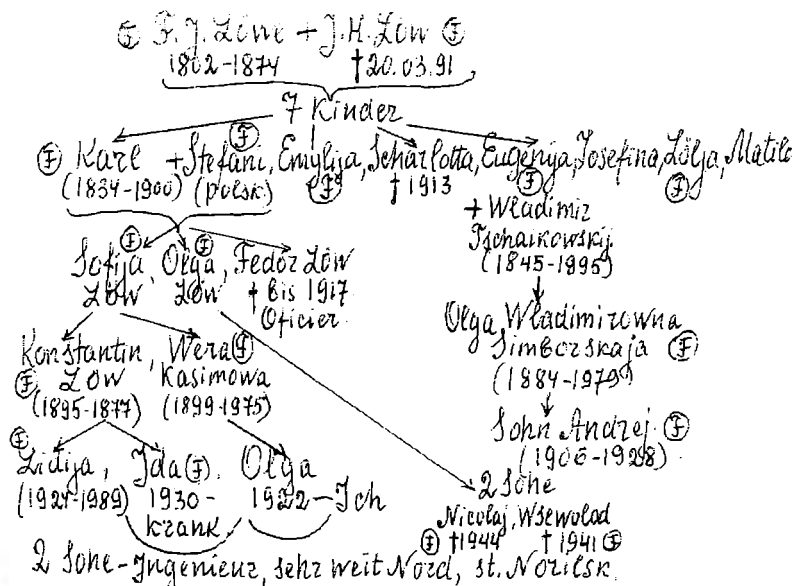 Ⓕ F. J. Löwe + J. H. Löw Ⓕ
1802-1874 †20.03.91
7 Kinder
Ⓕ Karl + Stefani, Emylija, Scharlotta, Eugenija, Josefina, Lölja, Matild
(1834-1900) (polsk) Ⓕ †1913 Ⓕ Ⓕ
+ Wladimir
Tschaikowskij
(1845-1895)
Sofija, Olga, Fedor Löw
Löw Löw † bis 1917
Oficier.
Olga Wladimirowna
Simborskaja Ⓕ
(1884-1979)
Konstantin, Wera Ⓕ
Ⓕ Löw Kasimowa
(1895-1877) (1899-1975)
Sohn Andrej Ⓕ
(1906-1928)
Lidija, Ida Ⓕ. Olga
(1921-1989) 1930- 1922-Ich
krank
2 Söhe
Nicolaj, Wsewolod
Ⓕ †1944 †1941 Ⓕ
2 Sohe-Ingenieur, sehr weit Nord, st. Norilsk.